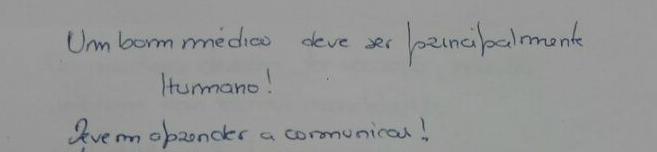 Um bom médico deve ser principalmente
Humano!
Devem aprender a comunicar!